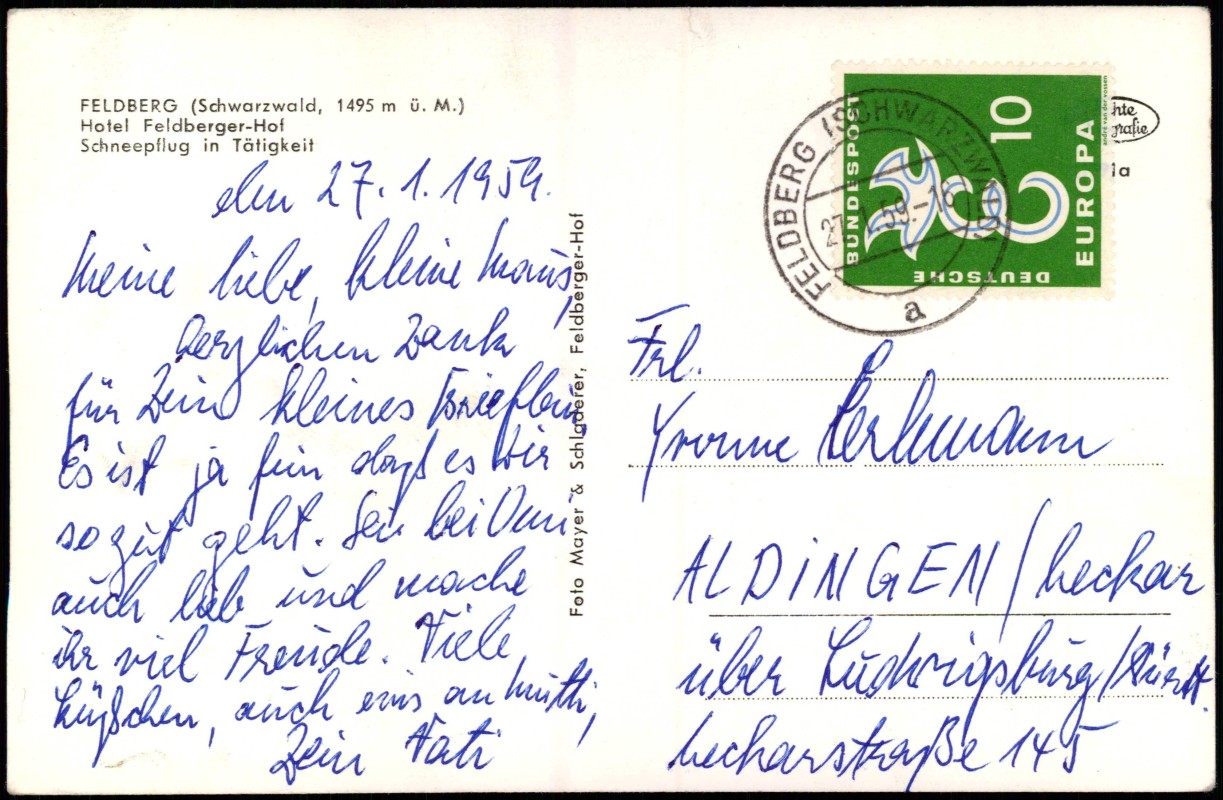 FELDBERG (Schwarzwald, 1495 m ü. M.)
Hotel Feldberger-Hof
Schneepflug in Tätigkeit
den 27. 1. 1959.
Meine liebe, kleine Maus,
Herzlichen Dank
für Dein kleines Brieflein,
Es ist ja fein daß es Dir
so gut geht. Sei bei Omi
auch lieb und mache
ihr viel Freude. Viele
Küßchen, auch eins an Mutti,
Dein Vati
Foto Mayer & Schladerer, Feldberger-Hof
FELDBERG (SCHWARZWALD)
27.1.59.-18
a
DEUTSCHE
BUNDESPOST
10
EUROPA
chte
grafie
1a
Frl.
Yvonne
ALDINGEN / Neckar
über Ludwigsburg / Württ.
Neckarstraße 145